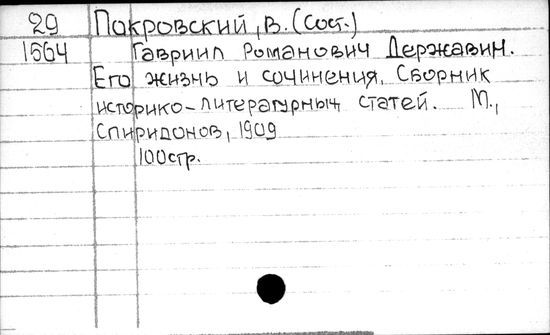 29 Покровский, В. (Сост.)
1564 Гавриил Романович Державин.
Его жизнь и сочинения. Сборник
историко-литературных статей. М.,
Спиридонов, 1909
100стр.